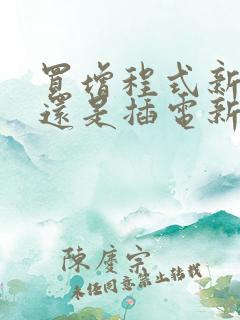 買增程式新
還是插電新
陳慶宗
未經同意禁止轉載